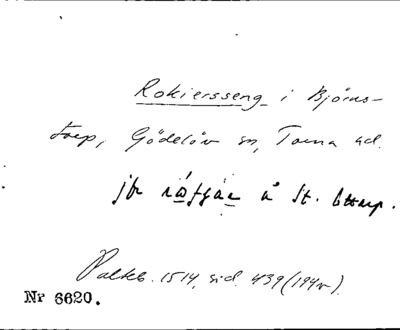 Rokiersseng i Björns-
torp, Gödelöv sn, Torna hd.
jfr råstjär å St. Uttarp.
Palteb. 1514, sid. 439 (194v).
Nr 6620.